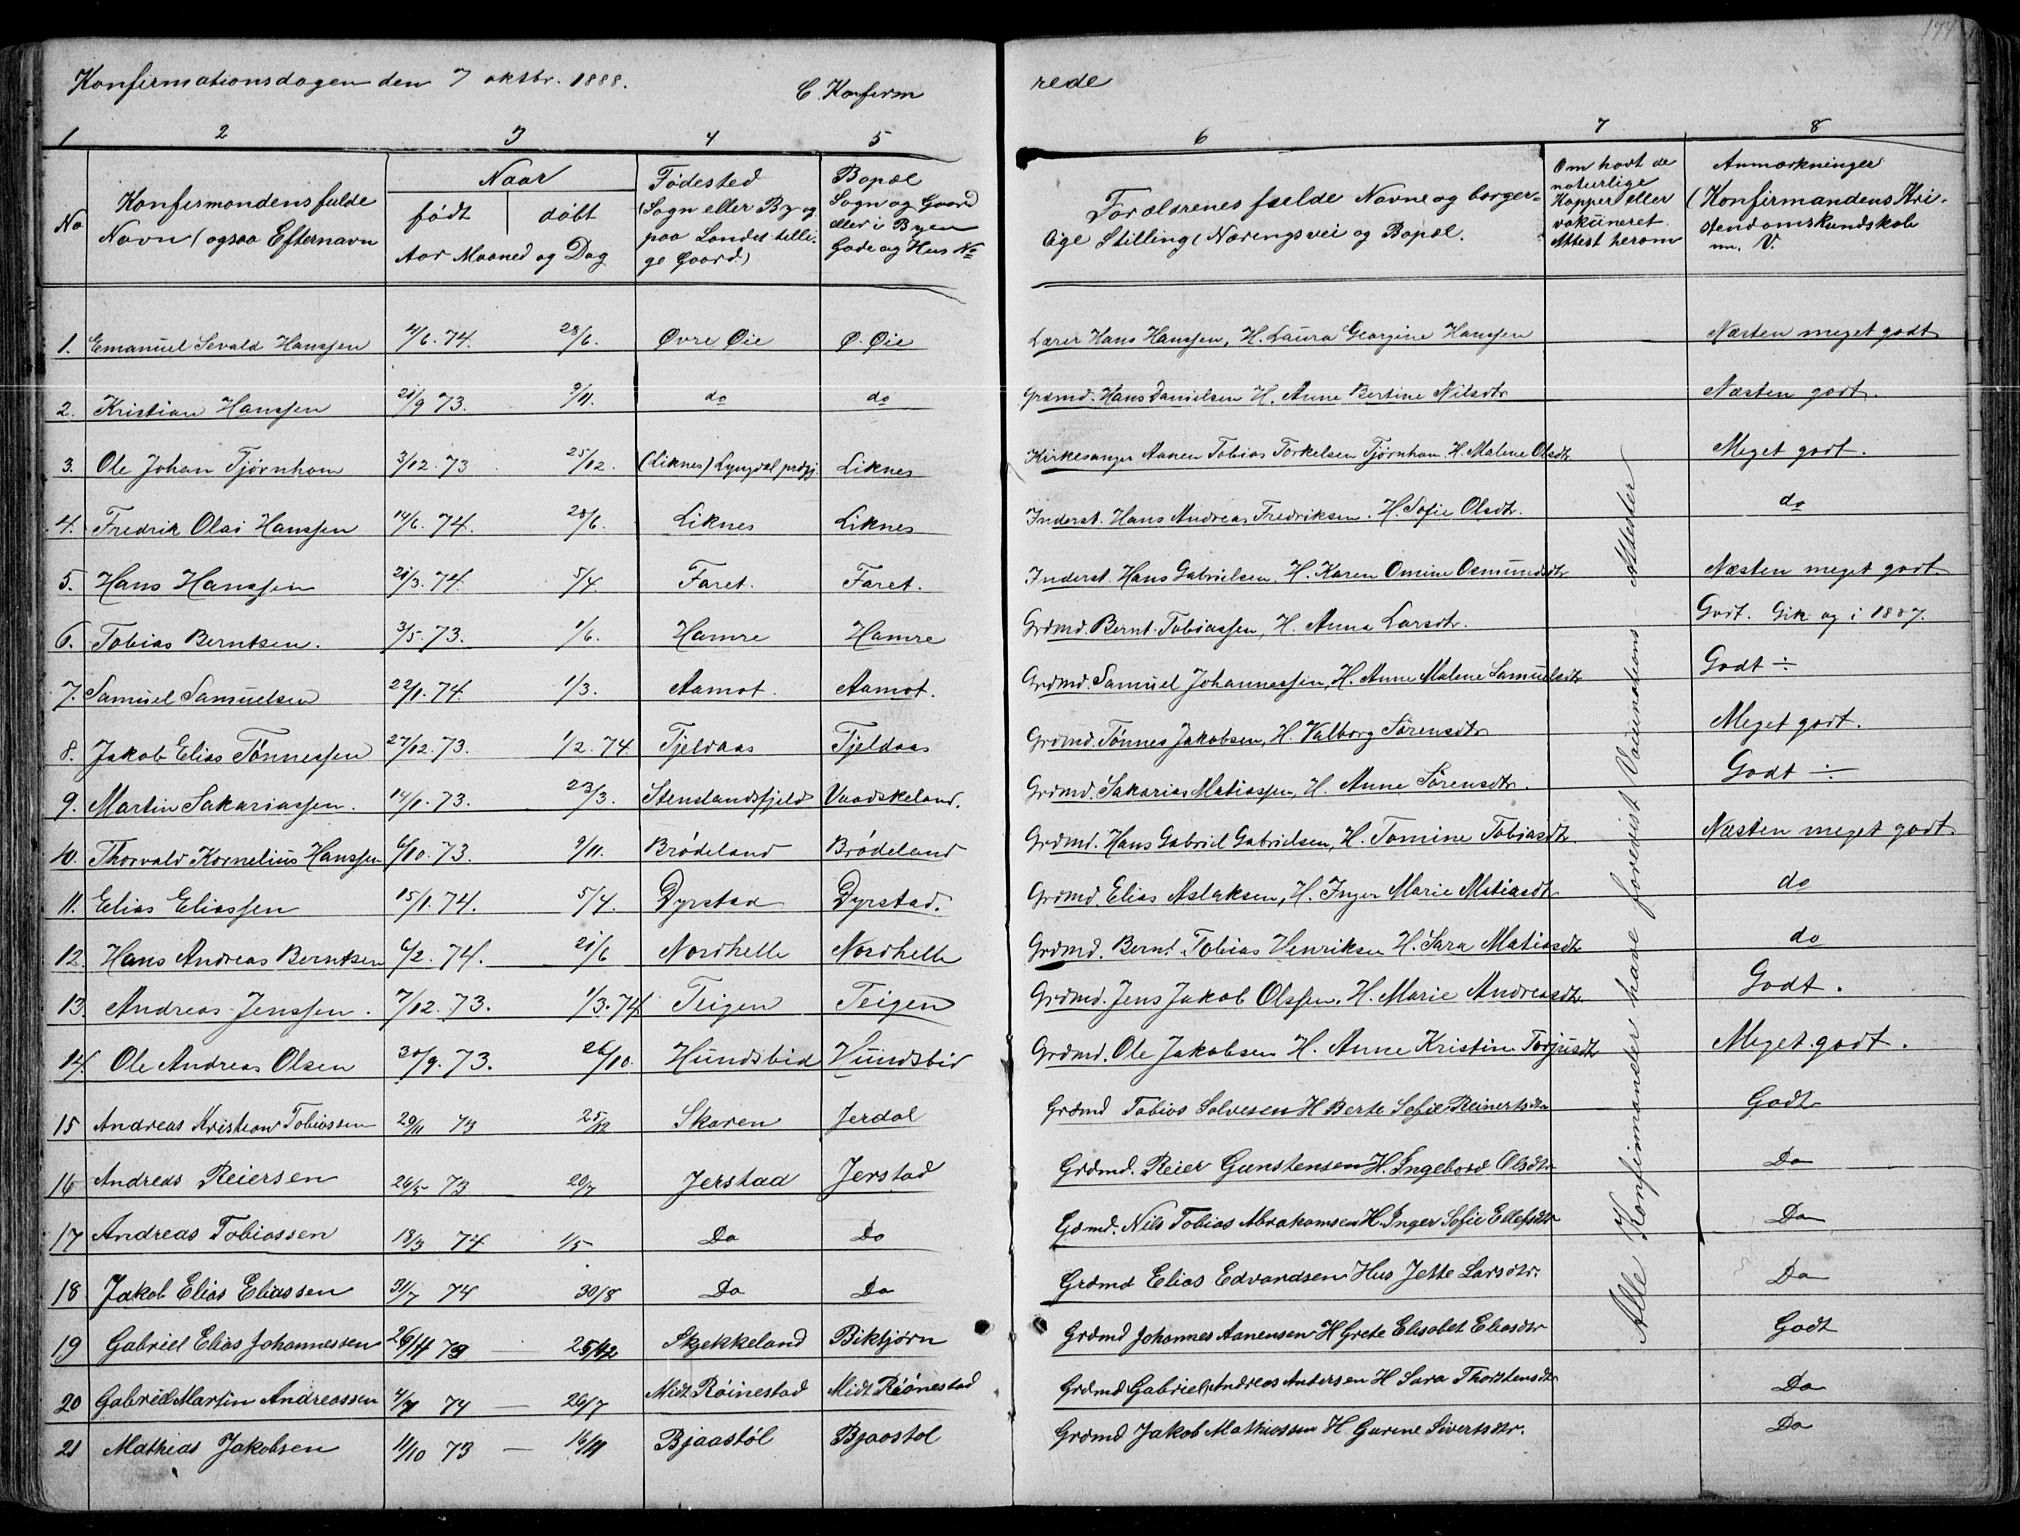 Konfirmationsdagen den 7 oktbr. 1888.
C. Konfirmerede
1 2 3 4 5 6 7 8
No
Konfirmandens fulde
Navn (ogsaa Efternavn
Naar
født døbt
Aar Maaned og Dag
Fødested
(Sogn eller By og
paa Landet tilli-
ge Gaard.)
Bopæl
Sogn og Gaard
eller i Byen
Gade og Hus No
Forældrenes fulde Navne og borger-
lige Stilling (Næringsvei og Bopæl.
Om havt de
naturlige
Kopper eller
vakcineret
Attest herom
Anmærkninger
(Konfirmandens Kri-
stendomskundskab
m. V.
1. Emanuel Sevald Hanssen 4/6. 74. 28/6. Øvre Øie Ø. Øie Lærer Hans Hanssen, H. Laura Georgine Hanssen Næsten meget godt
2. Kristian Hanssen 21/9 73. 9/11. do do Grdmd. Hans Danielsen H. Anne Bertine Nilsdtr Næsten godt.
3. Ole Johan Tjørnhom 3/12. 73 25/12. (Liknes) Lyngdal prdgj Liknes Kirkesanger Aanen Tobias Torkelsen Tjørnhom H. Malene Olsdtr Meget godt.
4. Fredrik Olai Hanssen 14/6. 74. 28/6. Liknes Liknes Inderst. Hans Andreas Fredriksen. H. Sofie Olsdtr. do
5. Hans Hanssen 21/3. 74. 5/4. Faret. Faret. Inderst. Hans Gabrielsen, H. Karen Omine Osmundsdtr Næsten meget godt.
6. Tobias Berntsen. 3/5. 73. 1/6. Hamre Hamre Grdmd. Bernt Tobiassen, H. Anna Larsdtr. Godt. Gik og i 1887.
7. Samuel Samuelsen 22/1. 74. 1/3. Aamot. Aamot. Grdmd. Samuel Johannessen, H. Anne Malene Samuelsdtr Godt ÷
8. Jakob Elias Tønnessen 27/12. 73. 1/2. 74. Tjeldaas Tjeldaas Grdmd. Tønnes Jakobsen, H. Valborg Sørensdtr Meget godt.
9. Martin Sakariassen. 14/1. 73. 23/3. Stenslandsfjeld Vaadskeland. Grdmd. Sakarias Matiassen, H. Anne Sørensdtr. Godt ÷
10. Thorvald Kornelius Hanssen 6/10. 73. 9/11. Brødeland Brødeland Grdmd. Hans Gabriel Gabrielsen, H. Tomine Tobiasdtr Næsten meget godt
11. Elias Eliassen 15/1. 74. 5/4. Dyrstad Dyrstad. Grdmd. Elias Aslaksen, H. Inger Marie Matiasdtr do
12. Hans Andreas Berntsen 6/2. 74. 21/6 Nordhelle Nordhelle Grdmd. Bernt Tobias Henriksen H. Sara Matiasdtr do
13. Andreas Jenssen. 7/12. 73. 1/3. 74 Teigen Teigen Grdmd. Jens Jakob Olssen. H. Marie Andreasdtr. Godt.
14. Ole Andreas Olsen 30/9. 73. 26/10. Hundsbid Hundsbid Grdmd. Ole Jakobsen H. Anne Kristin Torjusdtr Meget godt.
15 Andreas Kristian Tobiassen 29/11 73 25/12 Skaren Jerdal Grdmd Tobias Salvesen H Berte Sofie Reinertsdtr Godt
16 Andreas Reiersen 26/5 73 20/7 Jerstad Jerstad Grdmd. Reier Gunstensen H. Ingebord Olsdtr Do
17 Andreas Tobiassen 18/3 74 1/5 Do Do Gdmd. Nils Tobias Abrahamsen H. Inger Sofie Ellefsdtr Do
18 Jakob Elias Eliassen 31/7 74 30/8 Do Do Grdmd Elias Edvardsen Hus Jette Larsdtr. Do
19 Gabriel Elias Johannessen 26/11 73 25/12 Skjekkeland Birkjørn Grdmd Johannes Aanensen H Grete Elisabet Eliasdtr Godt
20 Gabriel Martin Andreassen 4/7 74 26/7 Midt. Røinestad Midt. Røinestad Grdmd Gabriel Andreas Andersen H Sara Thorstensdtr Do
21 Mathias Jakobsen 11/10 73 16/11 Bjaastøl Bjaastøl Grdmd Jakob Mathiassen H Gurine Sivertsdtr. Do
Alle Konfirmander have forevist Vaccinations-Attester